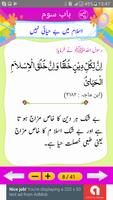 باب سوم
اسلام میں بے حیائی نہیں
رسول اللہ ﷺ نے فرمایا:
إِنَّ لِكُلِّ دِينٍ خُلُقًا وَإِنَّ خُلُقَ الْإِسْلَامِ
الْحَيَاءُ
(ابن ماجه: ٤١٨٢)
ہر دین کا ایک خاص مزاج ہوتا
ہے اور دین اسلام کا خاص مزاج
حیا ہے۔
8 / 41
Nice job!